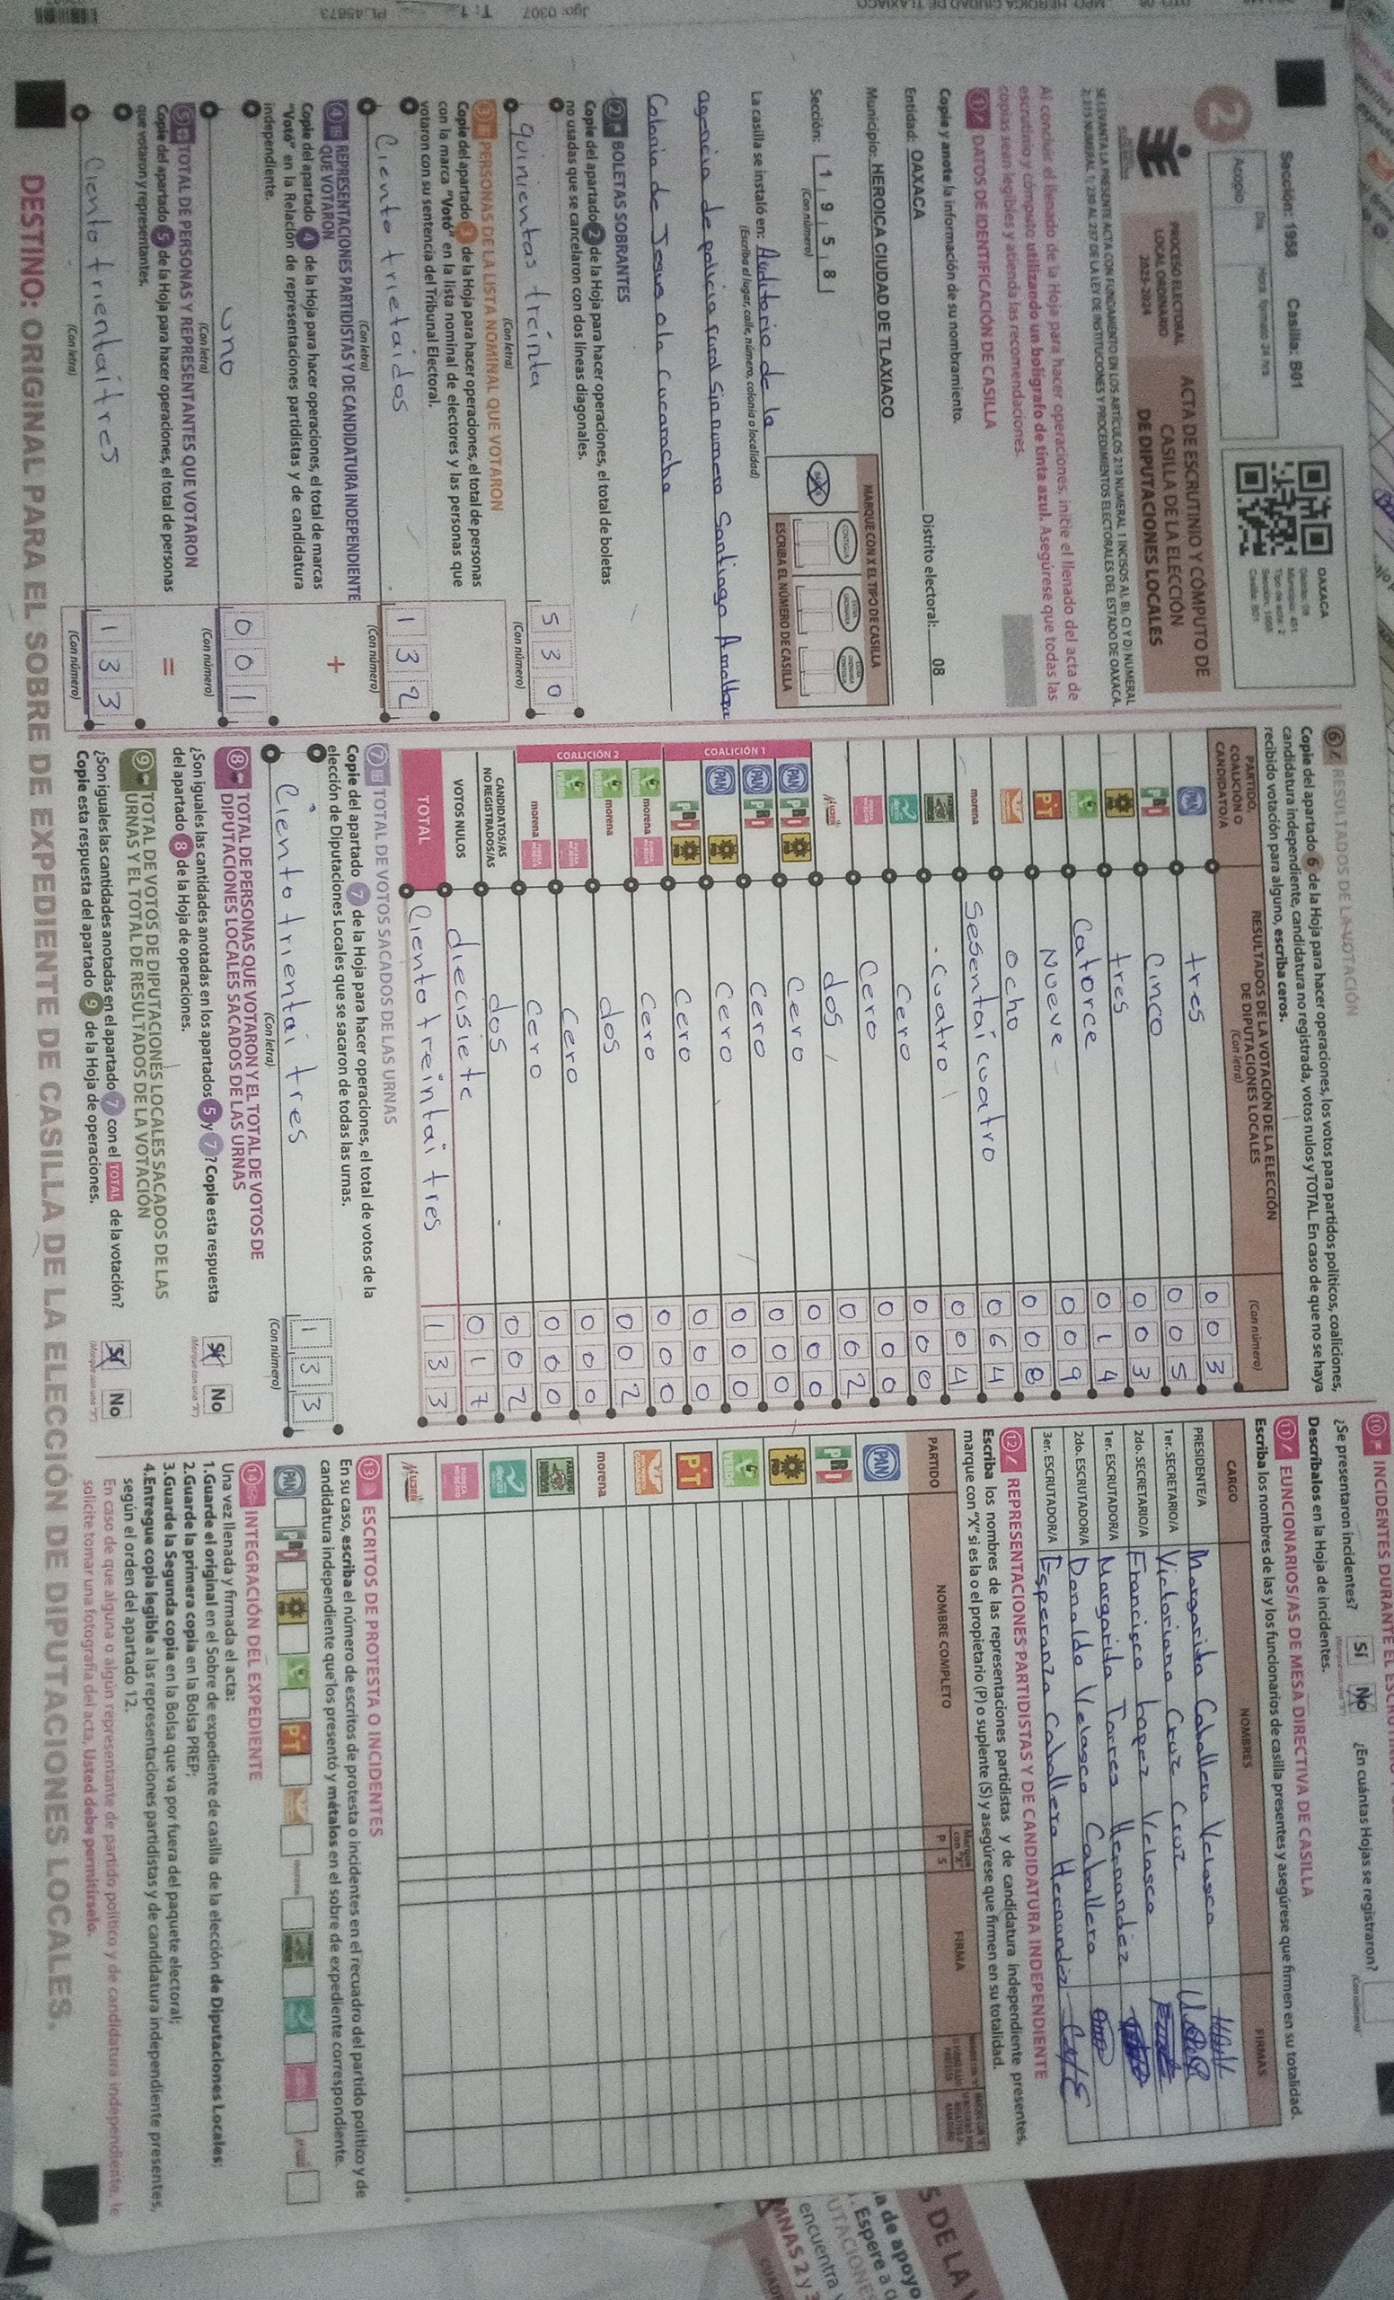 Sección: 1958 Casilla: B01
OAXACA
Distrito: 08
Municipio: 451
Tipo de acta: 2
Sección: 1958
Casilla: B01
2
Acopio
Día
Hora formato 24 hrs
PROCESO ELECTORAL
LOCAL ORDINARIO
2023-2024
ACTA DE ESCRUTINIO Y CÓMPUTO DE
CASILLA DE LA ELECCIÓN
DE DIPUTACIONES LOCALES
SE LEVANTA LA PRESENTE ACTA CON FUNDAMENTO EN LOS ARTÍCULOS 210 NUMERAL 1 INCISOS A), B), C) Y D); NUMERAL
2; 215 NUMERAL 1; 230 AL 237 DE LA LEY DE INSTITUCIONES Y PROCEDIMIENTOS ELECTORALES DEL ESTADO DE OAXACA.
Al concluir el llenado de la Hoja para hacer operaciones, inicie el llenado del acta de
escrutinio y cómputo utilizando un bolígrafo de tinta azul. Asegúrese que todas las
copias sean legibles y atienda las recomendaciones.
1 DATOS DE IDENTIFICACIÓN DE CASILLA
Copie y anote la información de su nombramiento.
Entidad: OAXACA Distrito electoral: 08
Municipio: HEROICA CIUDAD DE TLAXIACO
Sección: 1 9 5 8
(Con número)
MARQUE CON X EL TIPO DE CASILLA
ESCRIBA EL NÚMERO DE CASILLA
La casilla se instaló en: Auditorio de la
(Escriba el lugar, calle, número, colonia o localidad)
agencia de policia rural Sin numero Santiago Amoltepec
Colonia de Jesus a la Cucaracha
2 BOLETAS SOBRANTES
Copie del apartado 2 de la Hoja para hacer operaciones, el total de boletas
no usadas que se cancelaron con dos líneas diagonales.
quinientas treinta 5 3 0
(Con letra) (Con número)
3 PERSONAS DE LA LISTA NOMINAL QUE VOTARON
Copie del apartado 3 de la Hoja para hacer operaciones, el total de personas
con la marca "Votó" en la lista nominal de electores y las personas que
votaron con su sentencia del Tribunal Electoral.
Ciento trietaidos 1 3 2
(Con letra) (Con número)
4 REPRESENTACIONES PARTIDISTAS Y DE CANDIDATURA INDEPENDIENTE
QUE VOTARON
Copie del apartado 4 de la Hoja para hacer operaciones, el total de marcas
"Votó" en la Relación de representaciones partidistas y de candidatura
independiente.
+
uno 0 0 1
(Con letra) (Con número)
5 TOTAL DE PERSONAS Y REPRESENTANTES QUE VOTARON
Copie del apartado 5 de la Hoja para hacer operaciones, el total de personas
que votaron y representantes.
=
Ciento trientaitres 1 3 3
(Con letra) (Con número)
6 RESULTADOS DE LA VOTACIÓN
Copie del apartado 6 de la Hoja para hacer operaciones, los votos para partidos políticos, coaliciones,
candidatura independiente, candidatura no registrada, votos nulos y TOTAL. En caso de que no se haya
recibido votación para alguno, escriba ceros.
PARTIDO,
COALICIÓN O
CANDIDATO/A
RESULTADOS DE LA VOTACIÓN DE LA ELECCIÓN
DE DIPUTACIONES LOCALES
(Con letra)
(Con número)
PAN tres 0 0 3
PRI Cinco 0 0 5
PRD tres 0 0 3
VERDE Catorce 0 1 4
PT Nueve 0 0 9
ocho 0 0 8
morena Sesentai cuatro 0 6 4
cuatro 0 0 4
Cero 0 0 0
Cero 0 0 0
dos 0 0 2
COALICIÓN 1
PAN PRI PRD Cero 0 0 0
PAN PRI Cero 0 0 0
PAN PRD Cero 0 0 0
PRI PRD Cero 0 0 0
COALICIÓN 2
VERDE morena Cero 0 0 0
VERDE morena dos 0 0 2
VERDE Cero 0 0 0
morena Cero 0 0 0
CANDIDATOS/AS
NO REGISTRADOS/AS dos 0 0 2
VOTOS NULOS diecisiete 0 1 7
TOTAL Ciento treintai tres 1 3 3
7 TOTAL DE VOTOS SACADOS DE LAS URNAS
Copie del apartado 7 de la Hoja para hacer operaciones, el total de votos de la
elección de Diputaciones Locales que se sacaron de todas las urnas.
Ciento trientai tres 1 3 3
(Con letra) (Con número)
8 TOTAL DE PERSONAS QUE VOTARON Y EL TOTAL DE VOTOS DE
DIPUTACIONES LOCALES SACADOS DE LAS URNAS
¿Son iguales las cantidades anotadas en los apartados 5 y 7? Copie esta respuesta
del apartado 8 de la Hoja de operaciones.
Sí No
9 TOTAL DE VOTOS DE DIPUTACIONES LOCALES SACADOS DE LAS
URNAS Y EL TOTAL DE RESULTADOS DE LA VOTACIÓN
¿Son iguales las cantidades anotadas en el apartado 7 con el TOTAL de la votación?
Copie esta respuesta del apartado 9 de la Hoja de operaciones.
Sí No
10 INCIDENTES DURANTE EL
¿Se presentaron incidentes? Sí No ¿En cuántas Hojas se registraron?
(Con número)
Descríbalos en la Hoja de incidentes.
11 FUNCIONARIOS/AS DE MESA DIRECTIVA DE CASILLA
Escriba los nombres de las y los funcionarios de casilla presentes y asegúrese que firmen en su totalidad.
CARGO NOMBRES FIRMAS
PRESIDENTE/A Margarita Caballero Velasco
1er. SECRETARIO/A Victoriano Cruz Cruz
2do. SECRETARIO/A Francisco Lopez Velasco
1er. ESCRUTADOR/A Margarita Torres Hernandez
2do. ESCRUTADOR/A Donaldo Velasco Caballero
3er. ESCRUTADOR/A Esperanza Caballero Hernandez
12 REPRESENTACIONES PARTIDISTAS Y DE CANDIDATURA INDEPENDIENTE
Escriba los nombres de las representaciones partidistas y de candidatura independiente presentes,
marque con "X" si es la o el propietario (P) o suplente (S) y asegúrese que firmen en su totalidad.
PARTIDO NOMBRE COMPLETO P S FIRMA
PAN
PRI
PRD
VERDE
PT
morena
13 ESCRITOS DE PROTESTA O INCIDENTES
En su caso, escriba el número de escritos de protesta o incidentes en el recuadro del partido político y de
candidatura independiente que los presentó y métalos en el sobre de expediente correspondiente.
PAN PRI PRD PT
14 INTEGRACIÓN DEL EXPEDIENTE
Una vez llenada y firmada el acta:
1.Guarde el original en el Sobre de expediente de casilla de la elección de Diputaciones Locales;
2.Guarde la primera copia en la Bolsa PREP;
3.Guarde la Segunda copia en la Bolsa que va por fuera del paquete electoral;
4.Entregue copia legible a las representaciones partidistas y de candidatura independiente presentes,
según el orden del apartado 12.
En caso de que alguna o algún representante de partido político y de candidatura independiente, le
solicite tomar una fotografía del acta, Usted debe permitírselo.
DESTINO: ORIGINAL PARA EL SOBRE DE EXPEDIENTE DE CASILLA DE LA ELECCIÓN DE DIPUTACIONES LOCALES.
S DE LA
a de apoyo
. Espere a
UTACIONES
encuentra
RNAS 2 y
Jgo: 0307 T: 1